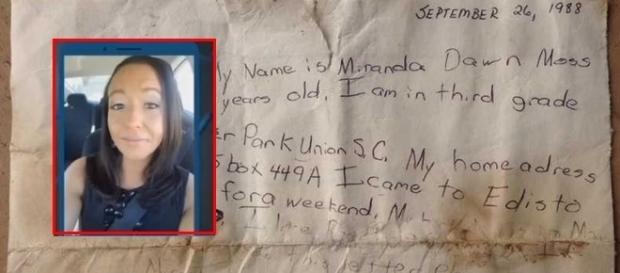 SEPTEMBER 26, 1988
y Name is Miranda Dawn Moss
years old. I am in third grade
er Park Union S.C. My home adress
5 box 449A I came to Edisto
for a weekend. M
I
this letter